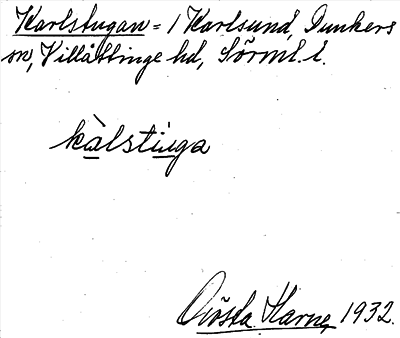 Karlstugan = / Karlsund, Dunkers
sn, Villåttinge hd, Sörml. l.
kàlstùga
Gösta Karne, 1932.